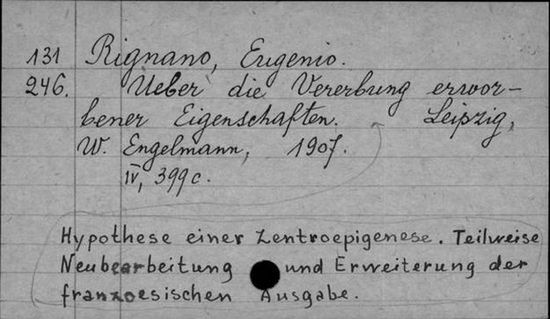 131 Rignano, Eugenio.
246. Ueber die Vererbung erwor-
bener Eigenschaften. Leipzig,
W. Engelmann, 1907.
IV, 399 c.
Hypothese einer Zentroepigenese. Teilweise
Neubearbeitung und Erweiterung der
franzoesischen Ausgabe.